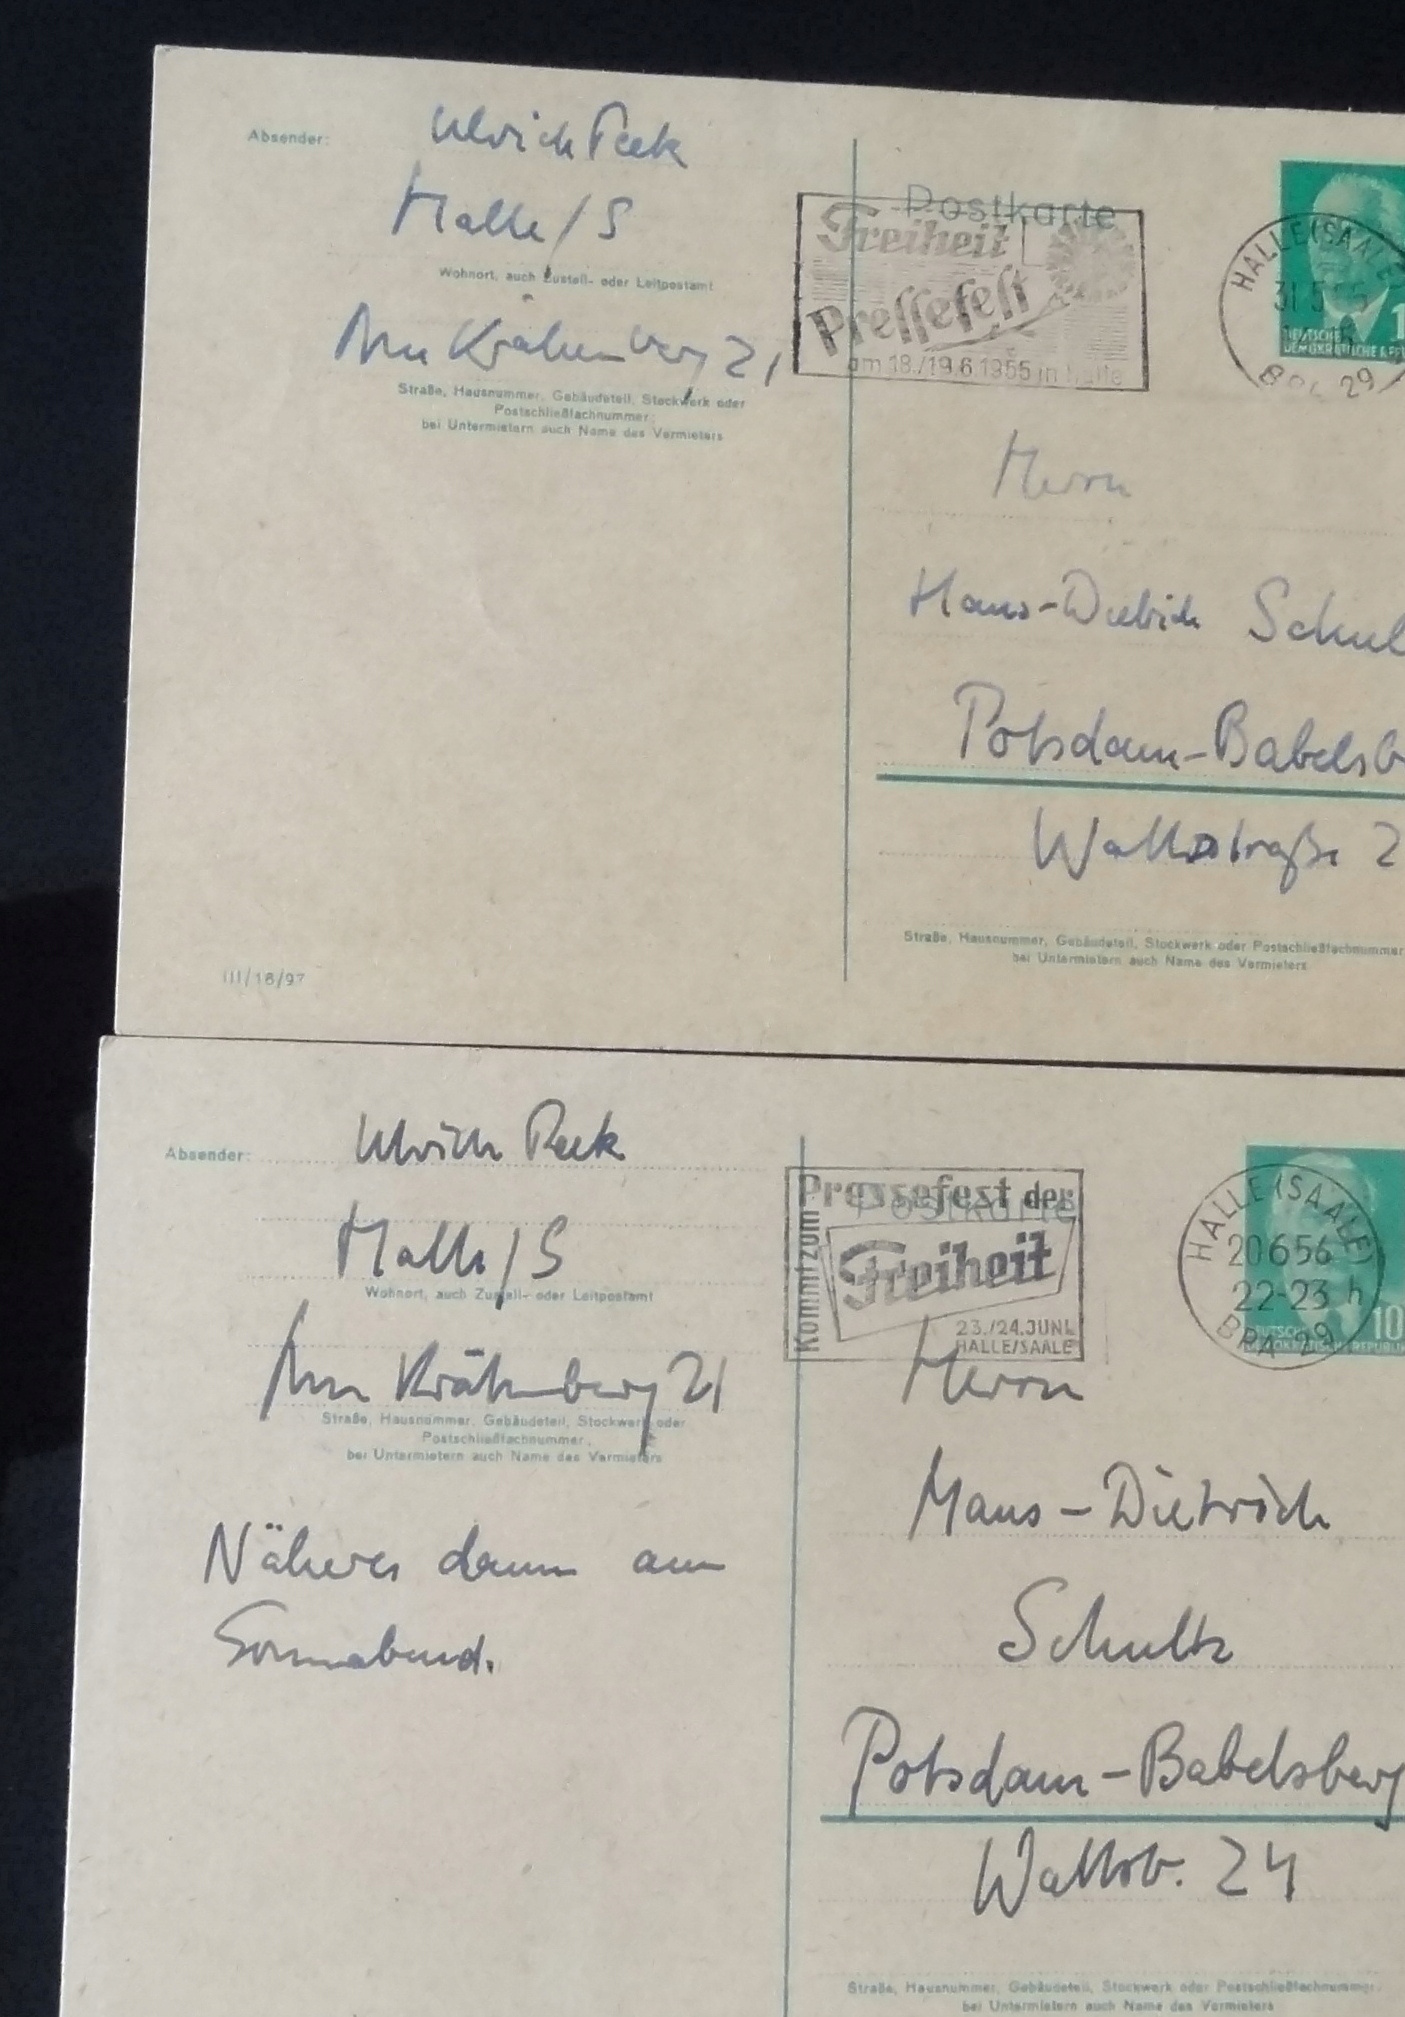 Absender: Ulrich Peek
Halle/S
Wohnort, auch Zustell- oder Leitpostamt
Am Krähenberg 21
Straße, Hausnummer, Gebäudeteil, Stockwerk oder
Postschließfachnummer;
bei Untermietern auch Name des Vermieters
III/18/97
Postkarte
Freiheit
Pressefest
am 18./19.6.1955 in Halle
HALLE (SAALE)
31.5.
BPA 29
1
DEUTSCHE
DEMOKRATISCHE REP
Herrn
Hans-Dietrich Schul
Potsdam-Babelsb
Wallstraße 2
Straße, Hausnummer, Gebäudeteil, Stockwerk oder Postschließfachnummer
bei Untermietern auch Name des Vermieters
Absender: Ulrich Peek
Halle/S
Wohnort, auch Zustell- oder Leitpostamt
Am Krähenberg 21
Straße, Hausnummer, Gebäudeteil, Stockwerk oder
Postschließfachnummer,
bei Untermietern auch Name des Vermieters
Näheres dann am
Sonnabend.
Postkarte
Kommt zum
Pressefest der
Freiheit
23./24. JUNI
HALLE/SAALE
HALLE (SAALE)
20656
22-23 h
BPA 29
10
DEUTSCHE
DEMOKRATISCHE REPUBLIK
Herrn
Hans-Dietrich
Schultz
Potsdam-Babelsberg
Wallstr. 24
Straße, Hausnummer, Gebäudeteil, Stockwerk oder Postschließfachnummer,
bei Untermietern auch Name des Vermieters